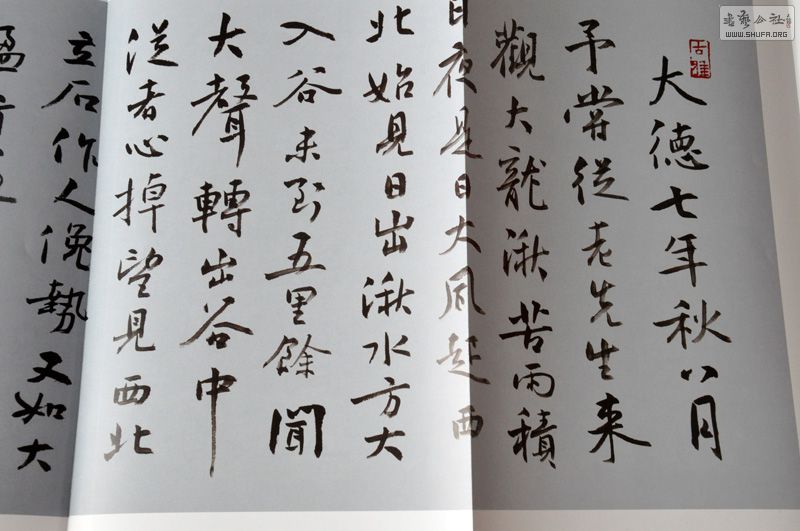 大德七年秋八月
予嘗從老先生來
觀大龍湫苦雨積
日夜是日大風起西
北始見日出湫水方大
入谷未到五里餘聞
大聲轉出谷中
從者心掉望見西北
立石作人俛勢又如大
書藝公社
WWW.SHUFA.ORG